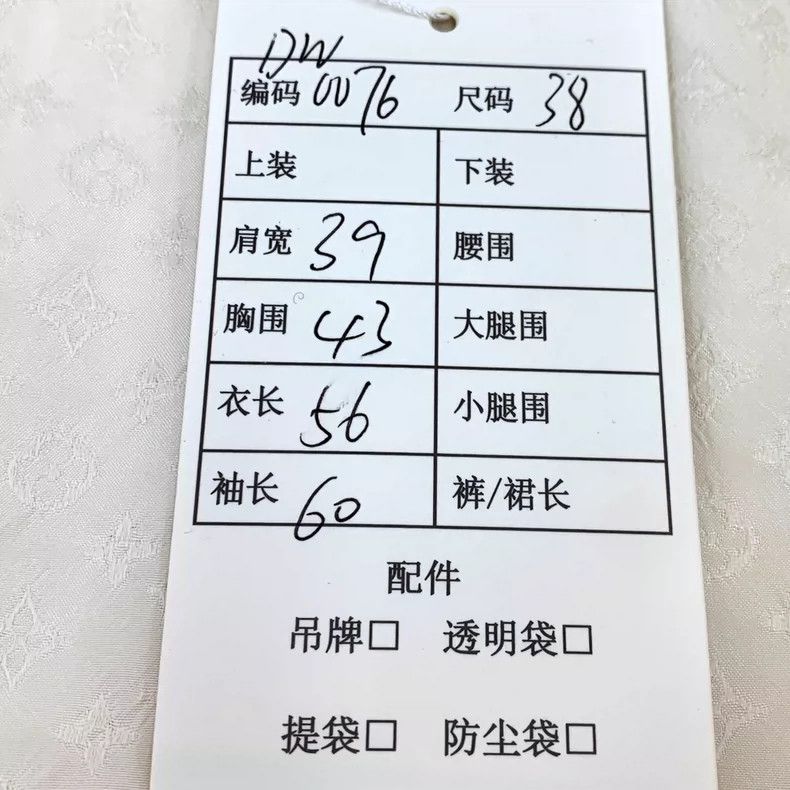 DW
编码 0076 尺码 38
上装 下装
肩宽 39 腰围
胸围 43 大腿围
衣长 56 小腿围
袖长 60 裤/裙长
配件
吊牌□ 透明袋□
提袋□ 防尘袋□